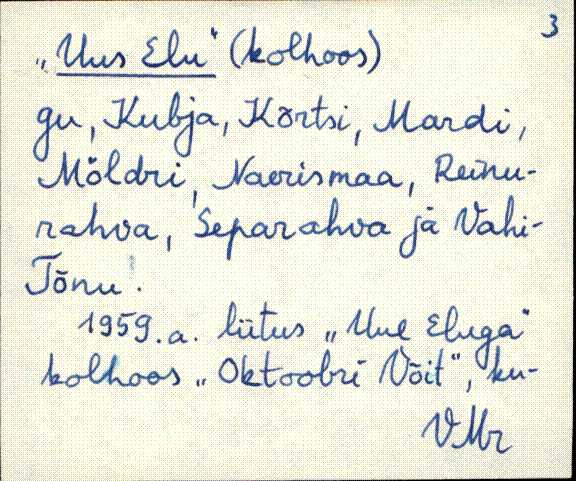 3
„Uus Elu“ (kolhoos)
gu, Kubja, Kõrtsi, Mardi,
Möldri, Naerismaa, Reinu-
rahva, Separahva ja Vahi-
Tõnu.
1959.a. liitus „Uue Eluga“
kolhoos „Oktoobri Võit“, ku-
VMr